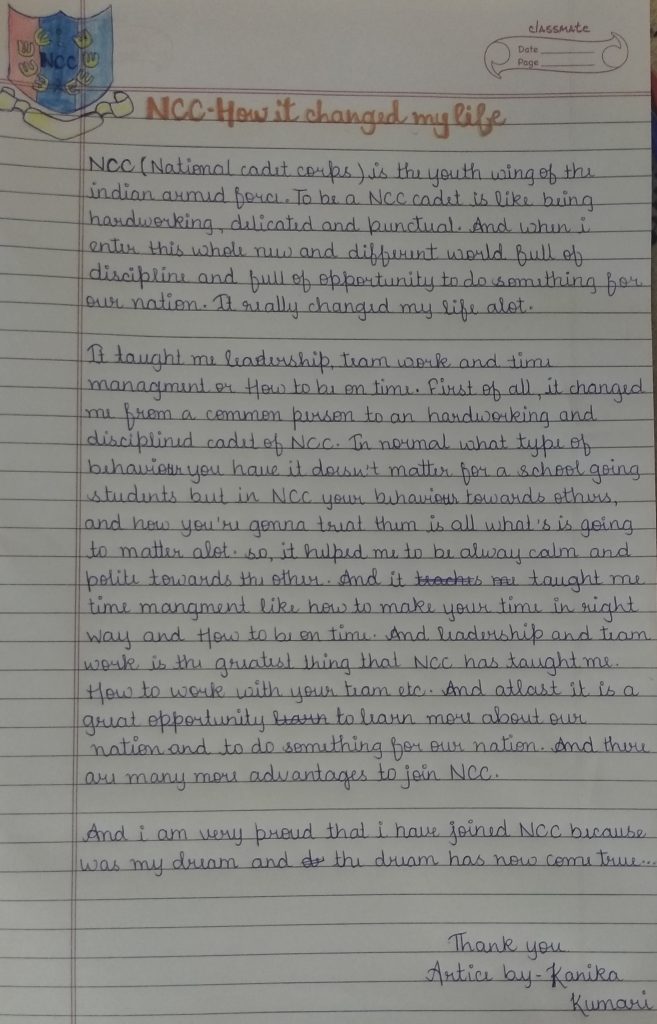 classmate
Date
Page
NCC
NCC-How it changed my life
NCC (National cadet corps) is the youth wing of the
indian armed force. To be a NCC cadet is like being
hardworking, delicated and punctual. And when i
enter this whole new and different world full of
discipline and full of opportunity to do something for
our nation. It really changed my life alot.
It taught me leadership, team work and time
managment or How to be on time. First of all, it changed
me from a common person to an hardworking and
disciplined cadet of NCC. In normal what type of
behaviour you have it doesn't matter for a school going
students but in NCC your behaviour towards others,
and how you're gonna treat them is all what's is going
to matter alot. so, it helped me to be alway calm and
polite towards the other. And it teaches me taught me
time mangment like how to make your time in right
way and How to be on time. And leadership and team
work is the greatest thing that NCC has taught me.
How to work with your team etc. And atlast it is a
great opportunity learn to learn more about our
nation and to do something for our nation. And there
are many more advantages to join NCC.
And i am very proud that i have joined NCC because
was my dream and do the dream has now come true...
Thank you
Artice by-Kanika
Kumari